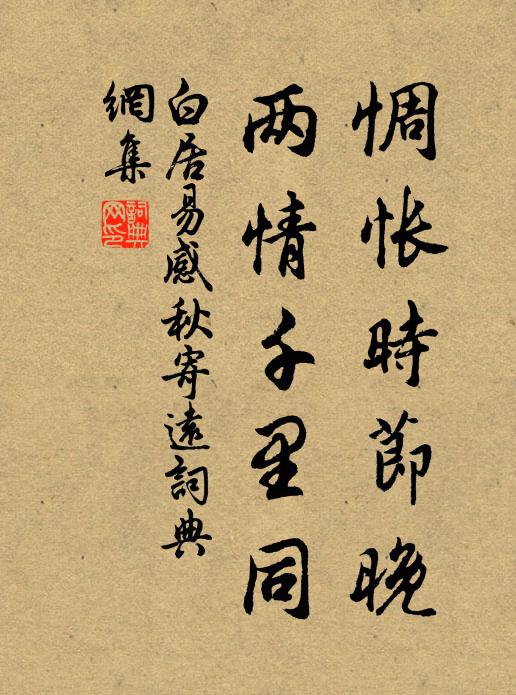 惆怅時節晚
两情千里同
白居易感秋寄遠詞典
網集
詞典網印